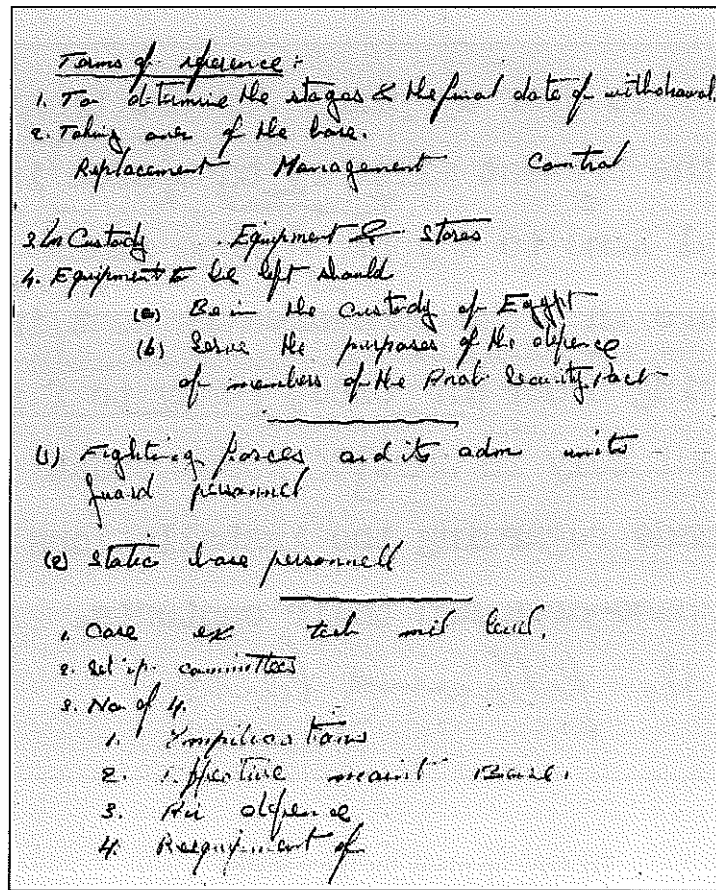 Terms of reference :-
1. To determine the stages & the final date of withdrawal.
2. Taking over of the base.
Replacement Management Control
3. In Custody . Equipment & Stores
4. Equipment to be left should
(a) Be in the custody of Egypt
(b) Serve the purposes of the defence
of members of the Arab Security Pact
(1) Fighting forces and its adm units
guard personnel
(2) Static base personnell
1. Case ex tech mil level.
2. Set up committees
3. No of 4.
1. Implications
2. Effective maint Base.
3. Air defence
4. Reequipment of